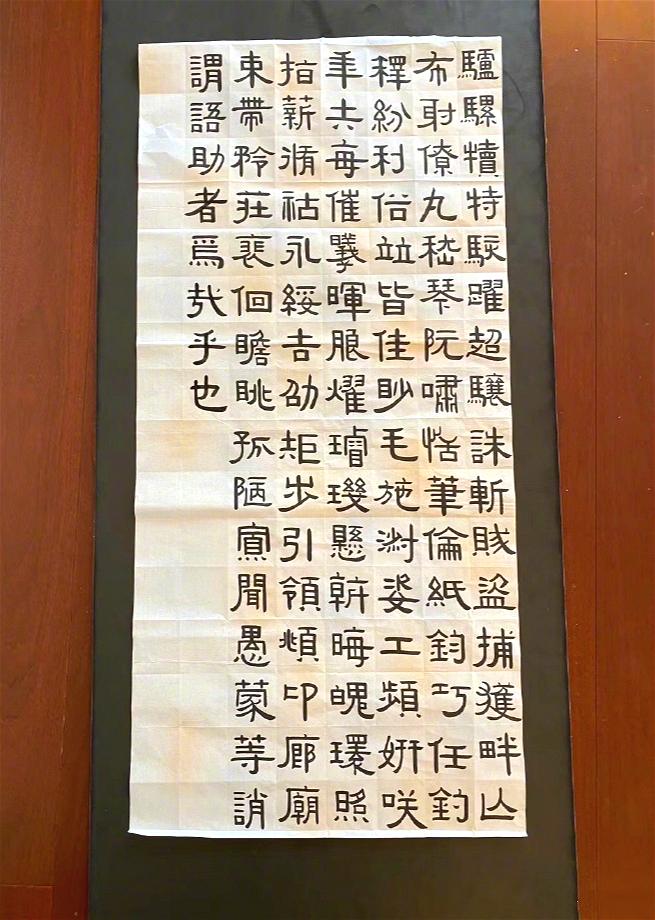 驢騾犢特駭躍超驤誅斬賊盜捕獲畔亡
布射僚丸嵇琴阮嘯恬筆倫紙鈞巧任釣
釋紛利俗竝皆佳眇毛施淑姿工頻妍咲
年矢每催曦暉朗燿璿璣懸斡晦魄環照
指薪脩祜永綏吉劭矩步引領頫卬廊廟
束帶矜莊裵佪瞻眺孤陋寡聞愚蒙等誚
謂語助者焉哉乎也